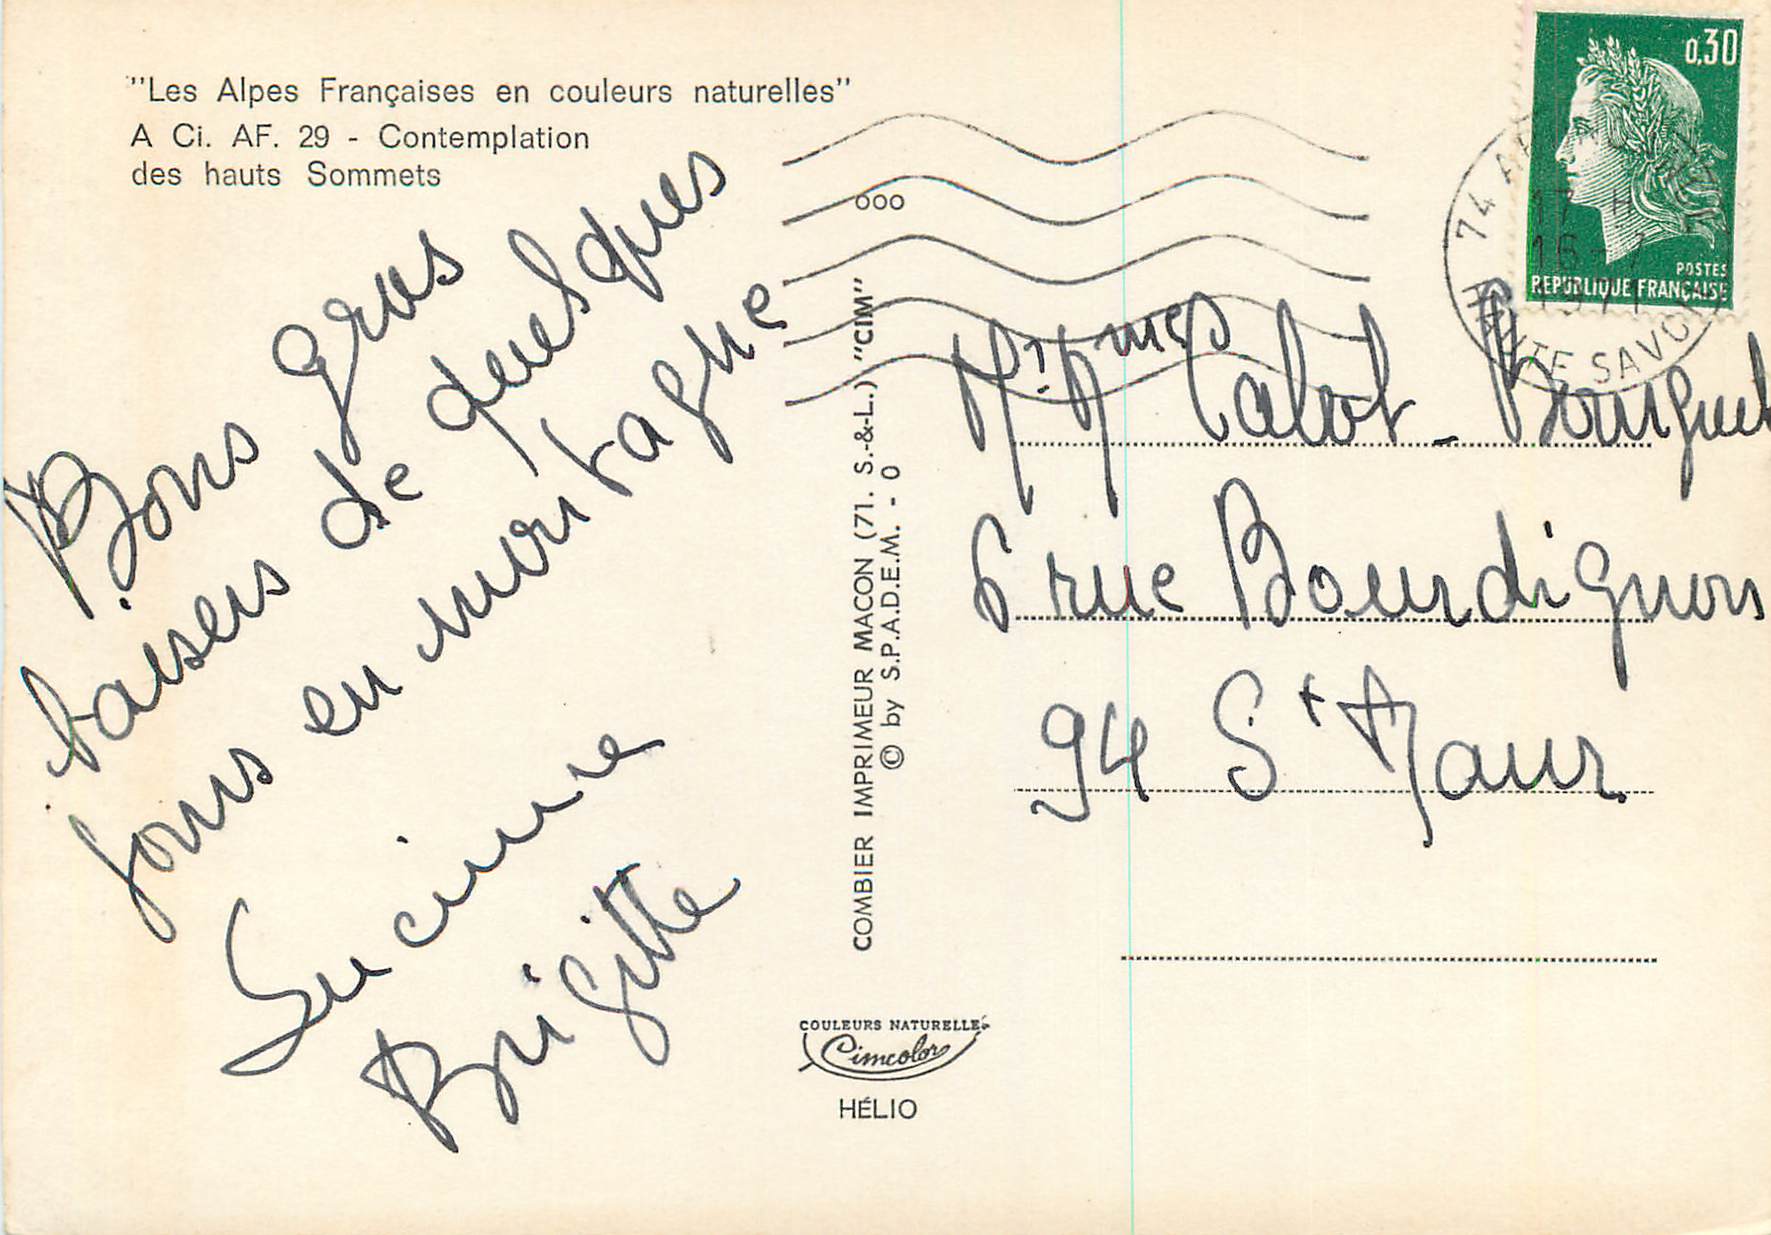 "Les Alpes Françaises en couleurs naturelles"
A Ci. AF. 29 - Contemplation
des hauts Sommets
Bons gros
baisers de quelques
jours en montagne
Lucienne
Brigitte
ooo
COMBIER IMPRIMEUR MACON (71. S.-&-L.) "CIM"
© by S.P.A.D.E.M. - O
COULEURS NATURELLES
Cimcolor
HÉLIO
0,30
POSTES
REPUBLIQUE FRANÇAISE
74
17 H
16-7
1971
HAUTE SAVOIE
Mr. Mmes Calvot - Bourguet
6 rue Bourdignon
94 St Maur